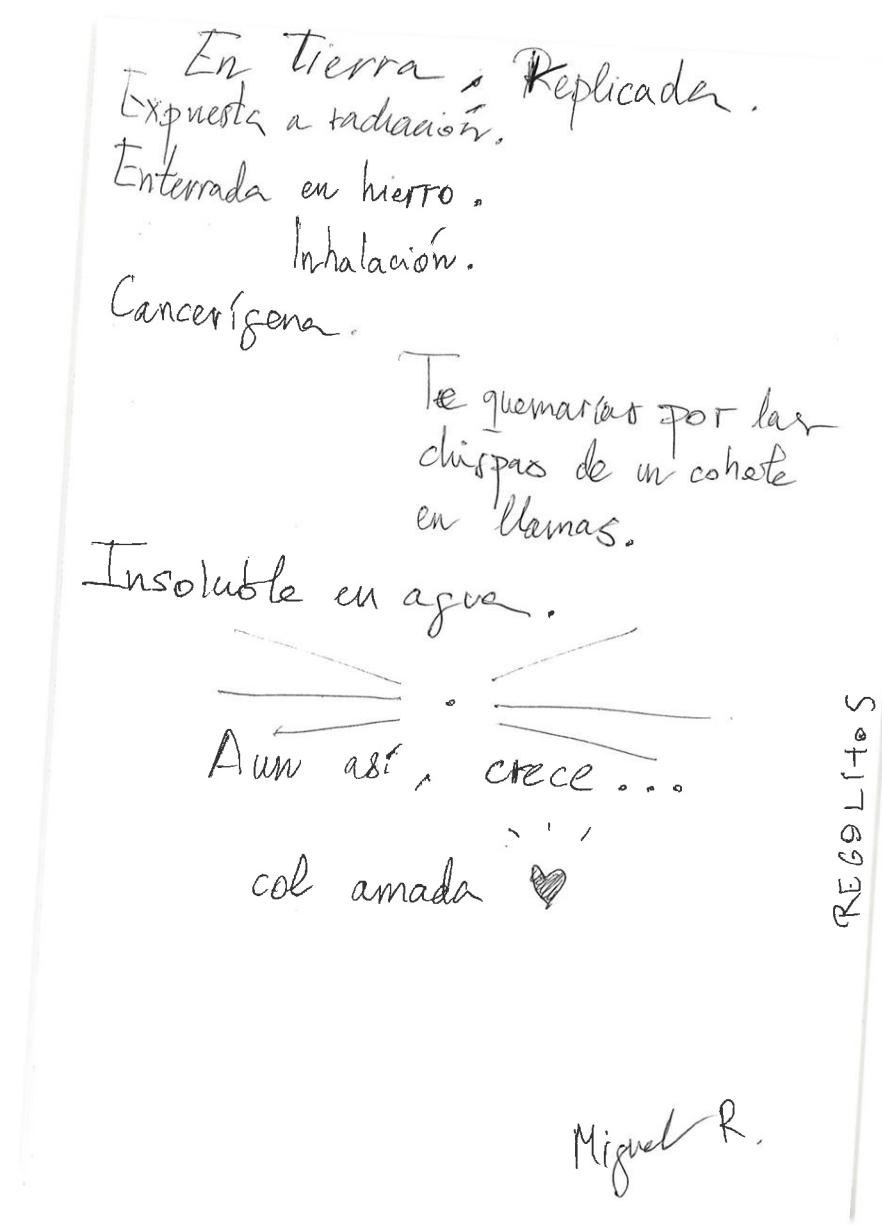 En Tierra, Replicada.
Expuesta a radiación.
Enterrada en hierro.
Inhalación.
Cancerígena.
Te quemarías por las
chispas de un cohete
en llamas.
Insoluble en agua.
Aun así, crece...
col amada
REGOLITOS
Miguel R.